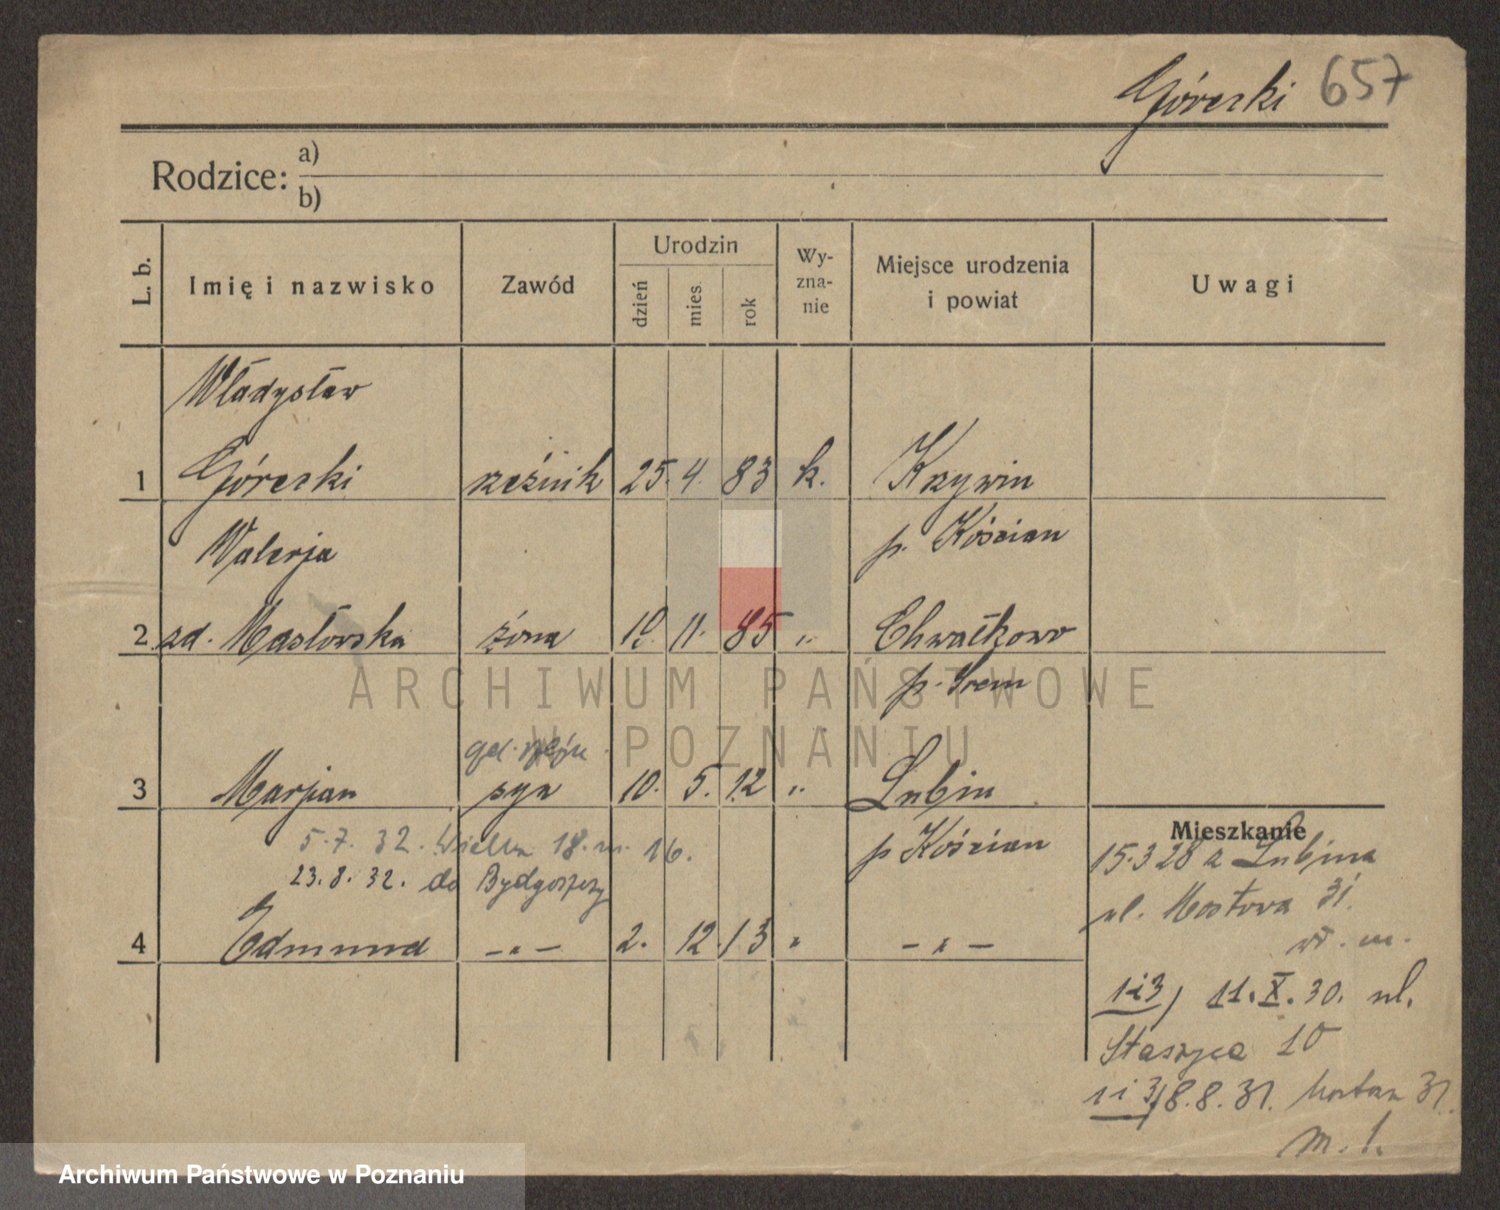 Górecki 657
Rodzice: a)
b)
L. b. Imię i nazwisko Zawód Urodzin dzień mies. rok Wy-zna-nie Miejsce urodzenia i powiat Uwagi
Władysław
1 Górecki rzeźnik 25. 4. 83 k. Krzywin
Walerja p. Kościan
2 zd. Masłowska żona 19. 11. 85 „ Chwałkowo
p. Śrem
3 Marjan syn 10. 5. 12 „ Lubiń
p Kościan
5.7.32. Wielka 18. m. 16.
23.8.32. do Bydgoszczy
4 Edmund —„— 2. 12. 13 „ —„—
Mieszkanie
15.3 28 z Lubinia
ul. Mostowa 31.
m.
1 i 3) 11. X. 30. ul.
Staszyca 10
1 i 3) 8.8.31. Mostowa 31
m. 1.
ARCHIWUM PAŃSTWOWE
W POZNANIU
Archiwum Państwowe w Poznaniu